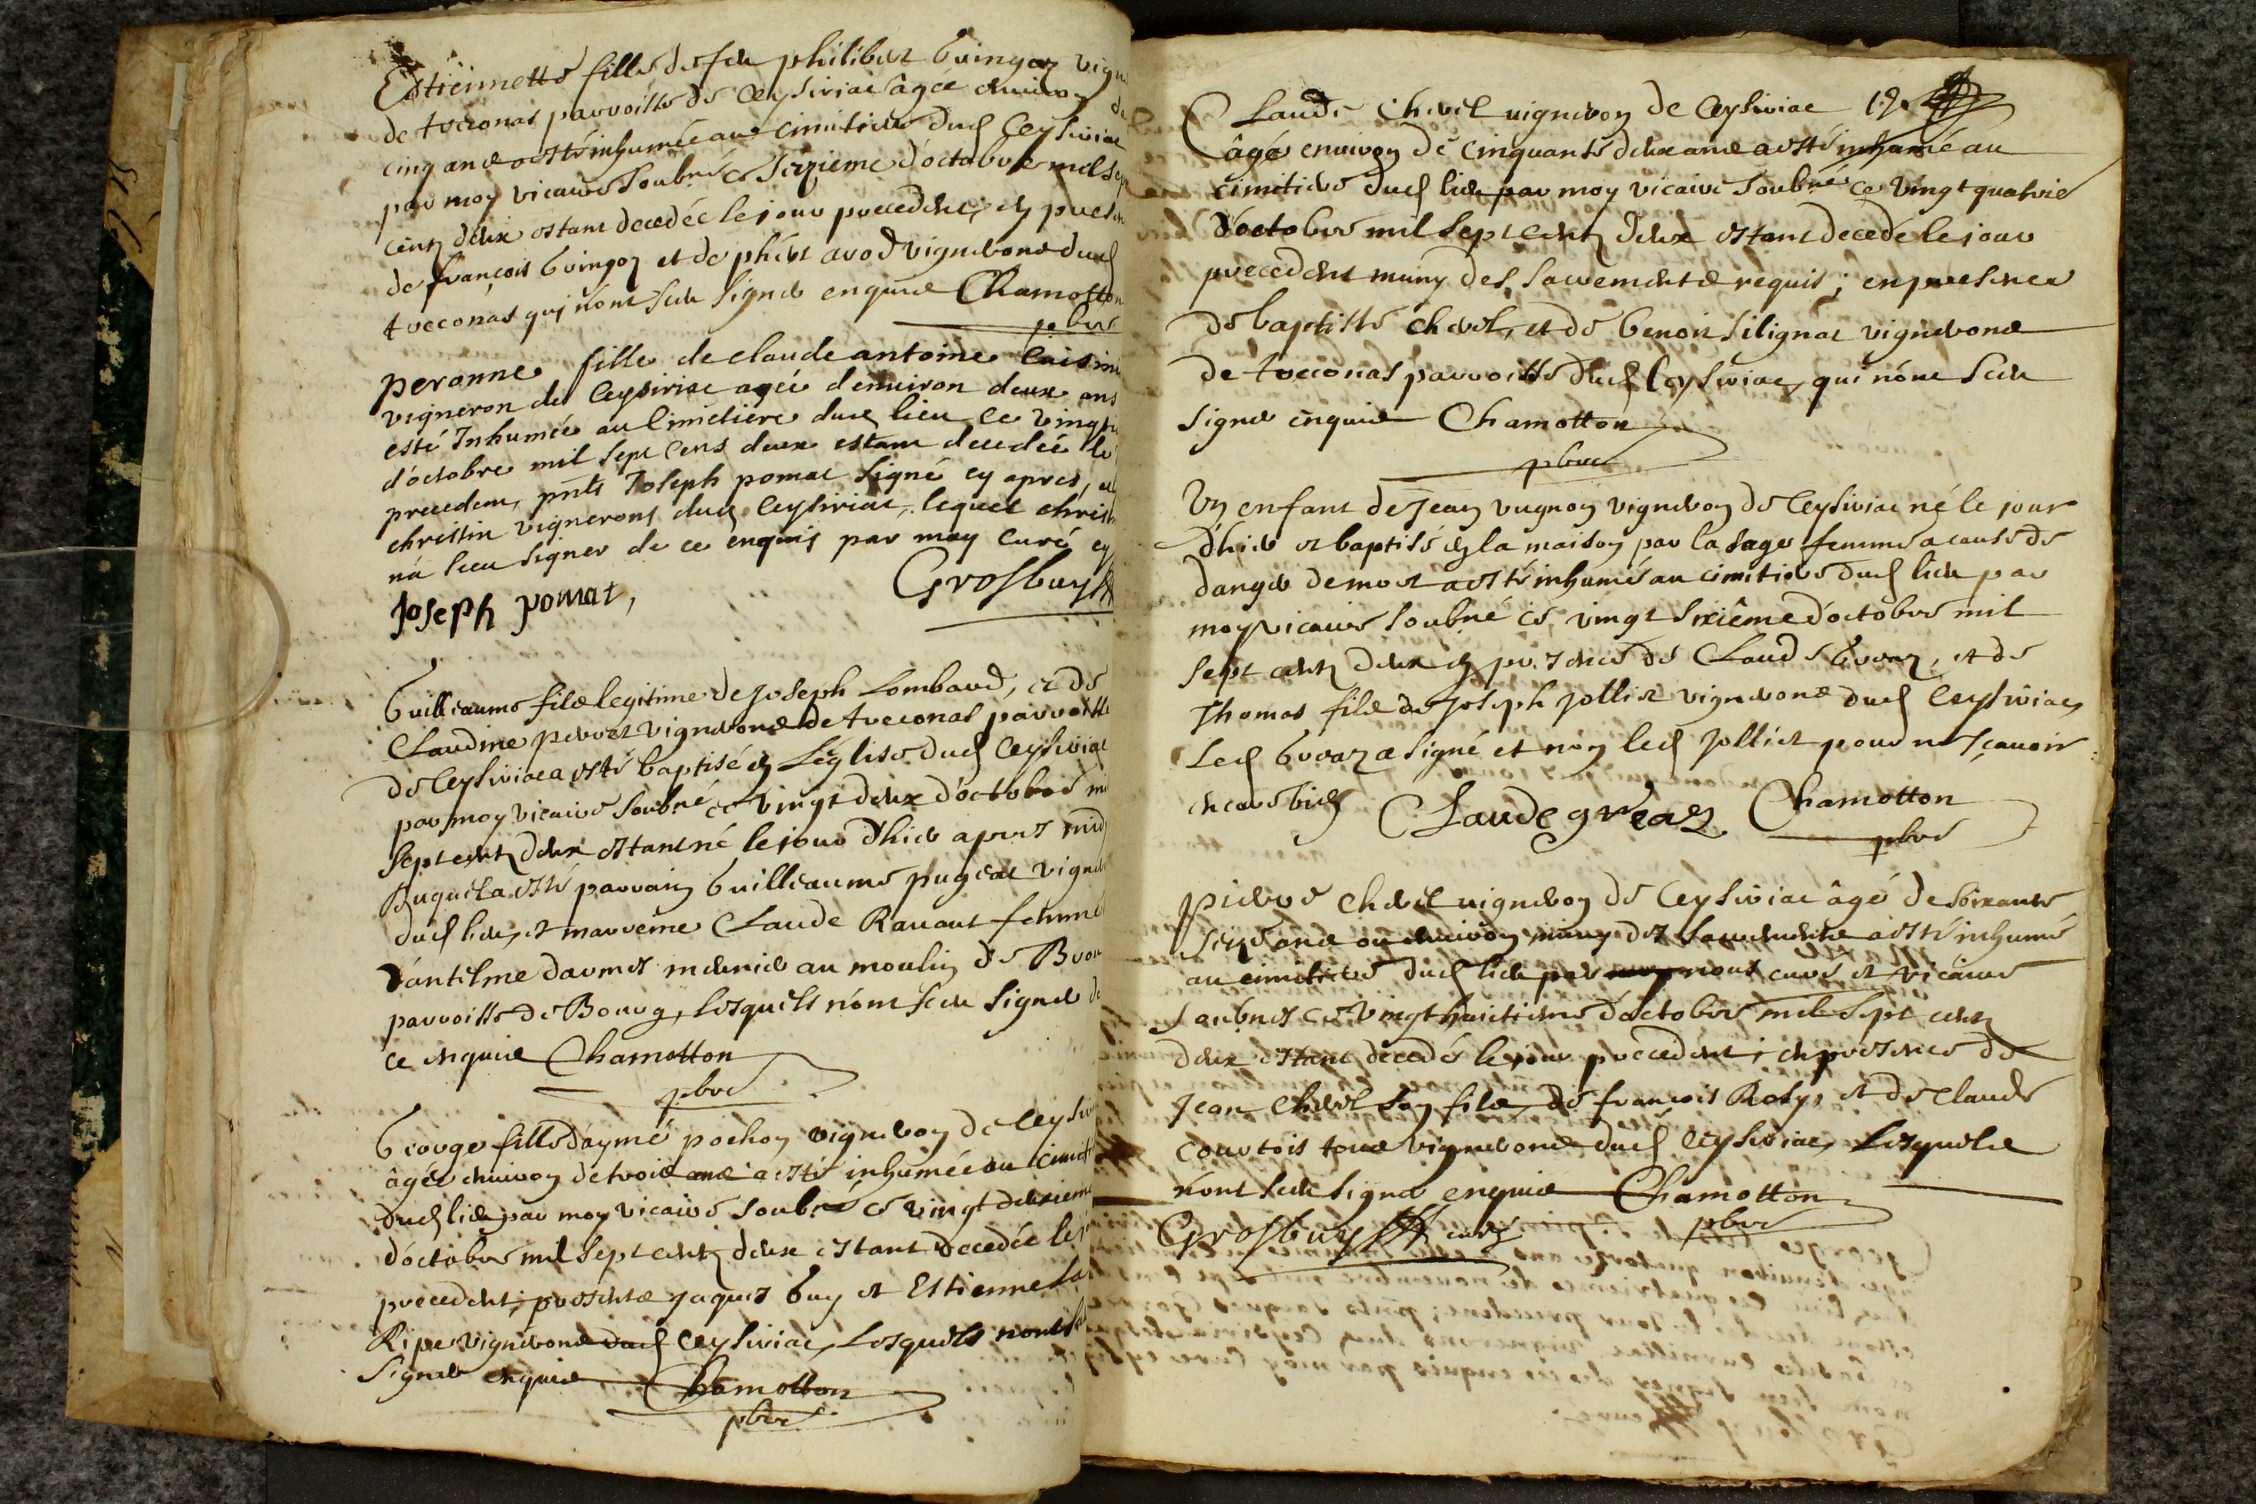 Estiennette fille de feu philibert Guingoz vign
de treconas parroisse de Ceysiriac âgée environ de
cinq ans a esté inhumée au cimitiere dud Ceysiriac
par moy vicaire soubné ce seizieme d'octobre mil sep
centz deux estant decedée le jour precedent; en presen
de françois Guingoz et de phibert avod vignerons dud
treconas qui n'ont sceu signer enquis Chamotton
pbre
peronne fille de claude antoine
vigneron de Ceysiriac agée d'environ deux ans
esté Inhumée au Cimetiere dud lieu le vingt
d'octobre mil sept Cens deux estant decedée le
precedent, pnts Joseph pomat signé cy apres, et
christin vignerons dud Ceysiriat, lequel christ
n'a sceu signer de ce enquis par moy Curé
Joseph pomat, Grosbuys
Guilleaume fils legitime de Joseph Lombard, et de
Claudine perret vignerons de treconas parroisse
de Ceysiriac a esté baptisé en L'église dud Ceysiriac
par moy vicaire soubné ce vingt deux d'octobre mi
sept centz deux estant né le jour d'hier apres midy
Auquel a esté parrain Guilleaume pugeat vigner
dud lieu, et marreine Claude Ravaut femme
d'antelme darmes meunier au moulin de
parroisse de Bourg, lesquels n'ont sceu signer de
ce enquis Chamotton
pbre
George fille d'aymé pochon vigneron de Ceysi
âgée environ de trois ans a esté inhumée au cimit
dud lieu par moy vicaire soubné ce vingt deuxieme
d'octobre mil sept centz deux estant decedée le
precedent; presents jaques Guy et Estienne La
Ripe vignerons dud Ceysiriac, Lesquels nont s
signer enquis Chamotton
pbre
Claude chevel vigneron de Ceysiriac 19
âgé environ de cinquante deux ans a esté inhumé au
cimitiere dud lieu par moy vicaire soubné ce vingt quatrie
d'octobre mil sept centz deux estant decedé le jour
precedent muny des sacrements requis; en presence
de baptiste chevel, et de benoit silignat vignerons
de treconas parroisse dud Ceysiriac, qui n'ont sceu
signer enquis Chamotton
pbre
Un enfant de Jean vugnon vigneron de Ceysiriac né le jour
d'hier et baptisé en la maison par la sage femme a cause de
danger de mort a esté inhumé au cimitiere dud lieu par
moy vicaire soubné ce vingt sixiême d'octobre mil
sept centz deux en presence de Claude Greaz, et de
Thomas fils de Joseph Jolliet vignerons dud Ceysiriac,
Led Greaz a signé et non led Jolliet pour ne sçavoir
Claude greaz Chamotton
pbre
pierre chevel vigneron de Ceysiriac âgé de soixante
seize ans ou environ muny des sacrements a esté inhumé
au cimitiere dud lieu par nous curé et vicaire
soubnes ce vingt huictieme d'octobre mil sept centz
deux estant decedé le jour precedent; en presence de
Jean chevel son fils, de françois Roly, et de Claude
Courtois tous vignerons dud Ceysiriac, Lesquels
n'ont sceu signer enquis Chamotton
Grosbuys curé pbre